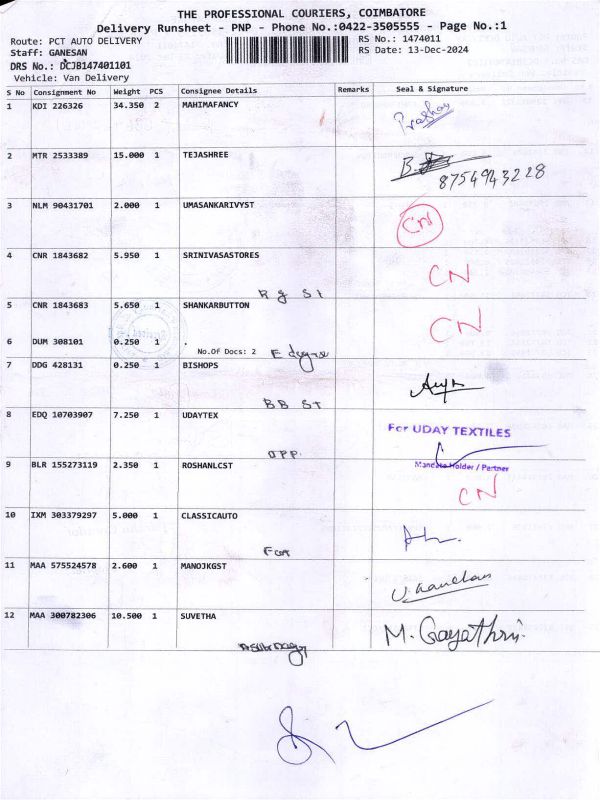 THE PROFESSIONAL COURIERS, COIMBATORE
Delivery Runsheet - PNP - Phone No.:0422-3505555 - Page No.:1
Route: PCT AUTO DELIVERY
Staff: GANESAN
DRS No.: DCJB147401101
Vehicle: Van Delivery
RS No.: 1474011
RS Date: 13-Dec-2024
S No Consignment No Weight PCS Consignee Details Remarks Seal & Signature
1 KDI 226326 34.350 2 MAHIMAFANCY
2 MTR 2533389 15.000 1 TEJASHREE
8754943228
3 NLM 90431701 2.000 1 UMASANKARIVYST CN
4 CNR 1843682 5.950 1 SRINIVASASTORES CN
R g St
5 CNR 1843683 5.650 1 SHANKARBUTTON CN
6 DUM 308101 0.250 1 .
No.Of Docs: 2
7 DDG 428131 0.250 1 BISHOPS
BB St
8 EDQ 10703907 7.250 1 UDAYTEX
For UDAY TEXTILES
OPP.
Mandate Holder / Partner
9 BLR 155273119 2.350 1 ROSHANLCST CN
10 IXM 303379297 5.000 1 CLASSICAUTO
11 MAA 575524578 2.600 1 MANOJKGST
12 MAA 300782306 10.500 1 SUVETHA
M. Gayathri.